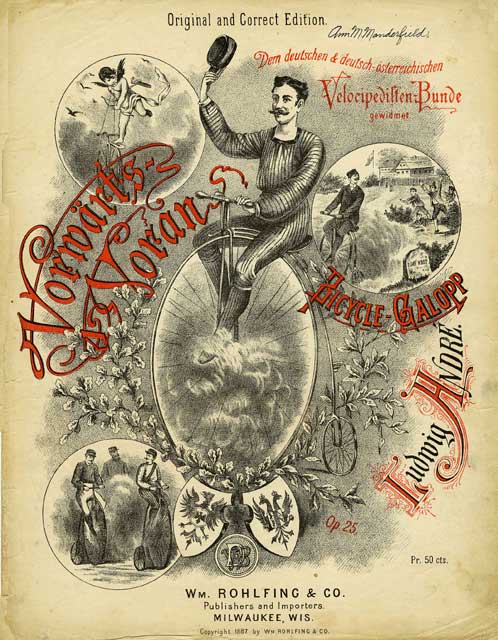 Original and Correct Edition.
Ann M Manderfield
Dem deutschen & deutsch-österreichischen
Velocipedisten-Bunde
gewidmet
Vorwärts-
Voran
Bicycle-Galopp
Ludwig André.
Op. 25.
Pr. 50 cts.
Wm. Rohlfing & Co.
Publishers and Importers.
Milwaukee, Wis.
Copyright 1887 by Wm Rohlfing & Co.